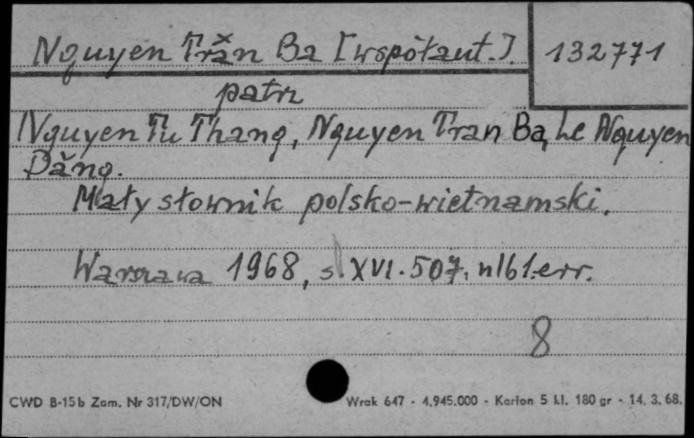 Nguyen Trăn Ba [współaut.]. 132771
patrz
Nguyen Tu Thang, Nguyen Tran Ba, Le Nguyen
Dăng.
Mały słownik polsko-wietnamski.
Warszawa 1968, s. XVI. 507. nlb1.err.
8
CWD B-15b Zam. Nr 317/DW/ON Wrak 647 - 4.945.000 - Karton 5 kl. 180 gr - 14. 3. 68.